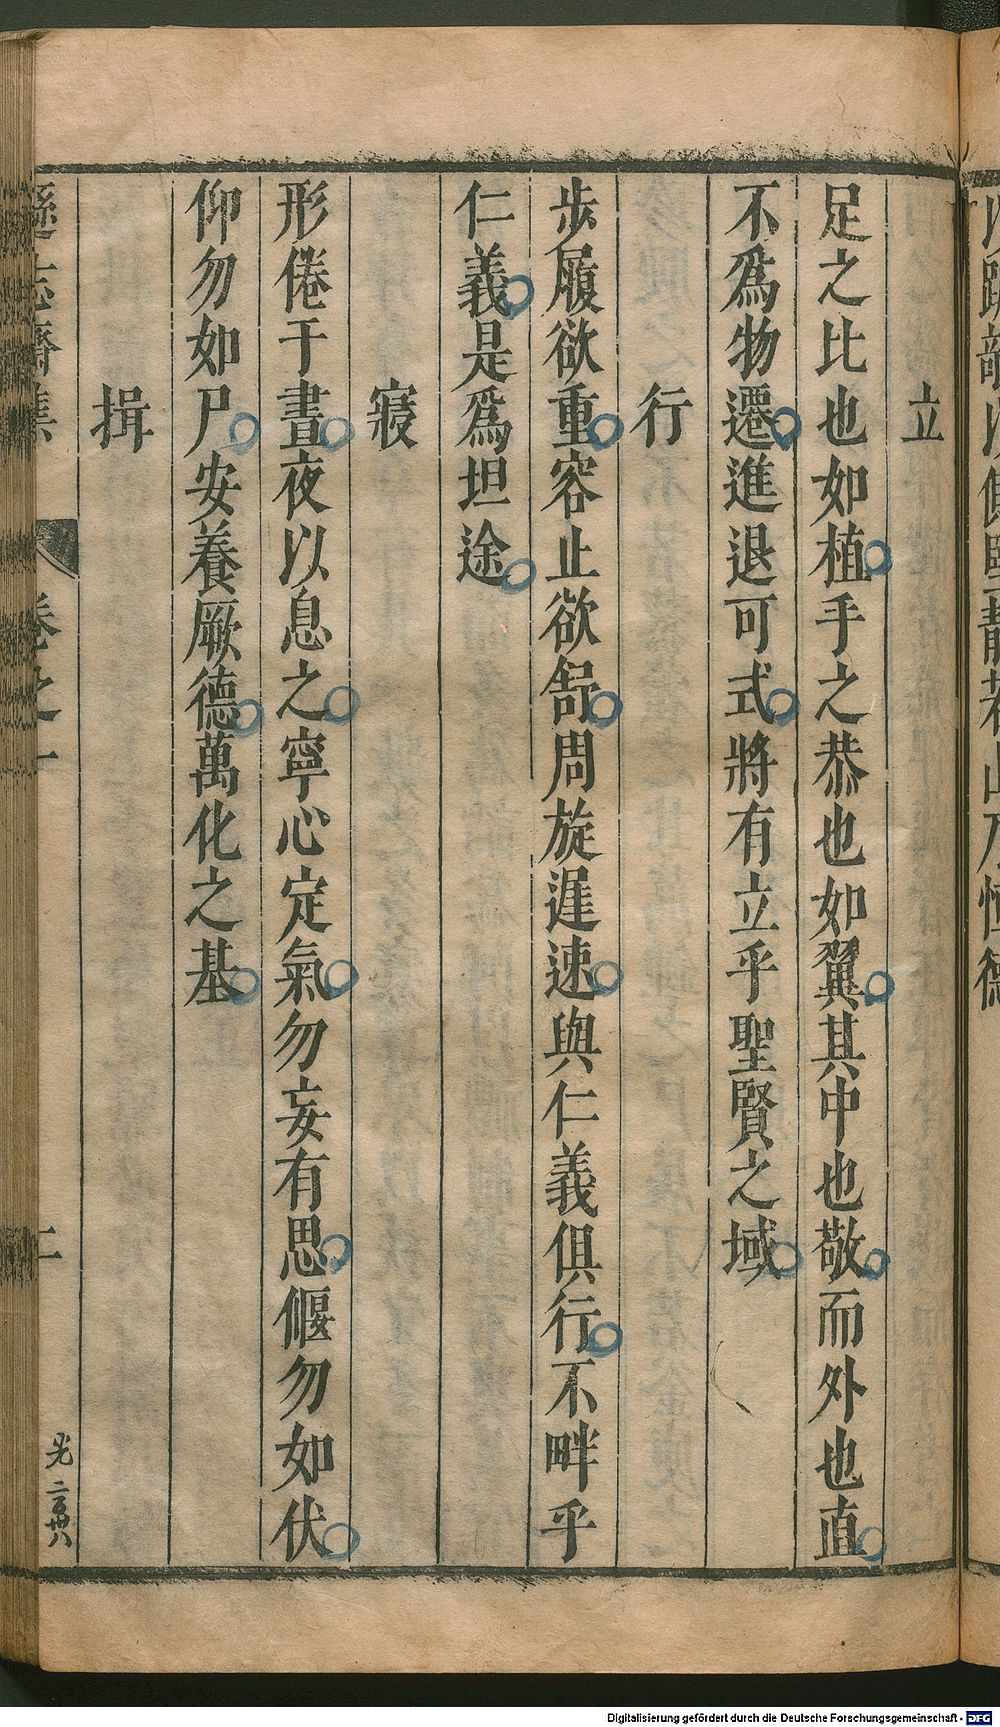 立
足之比也如植手之恭也如翼其中也敬而外也直
不爲物遷進退可式將有立乎聖賢之域
行
步履欲重容止欲舒周旋遲速與仁義俱行不畔乎
仁義是爲坦途
寢
形倦于晝夜以息之寧心定氣勿妄有思偃勿如伏
仰勿如尸安養厥德萬化之基
揖
遜志齋集
卷之一
二
Digitalisierung gefördert durch die Deutsche Forschungsgemeinschaft - DFG